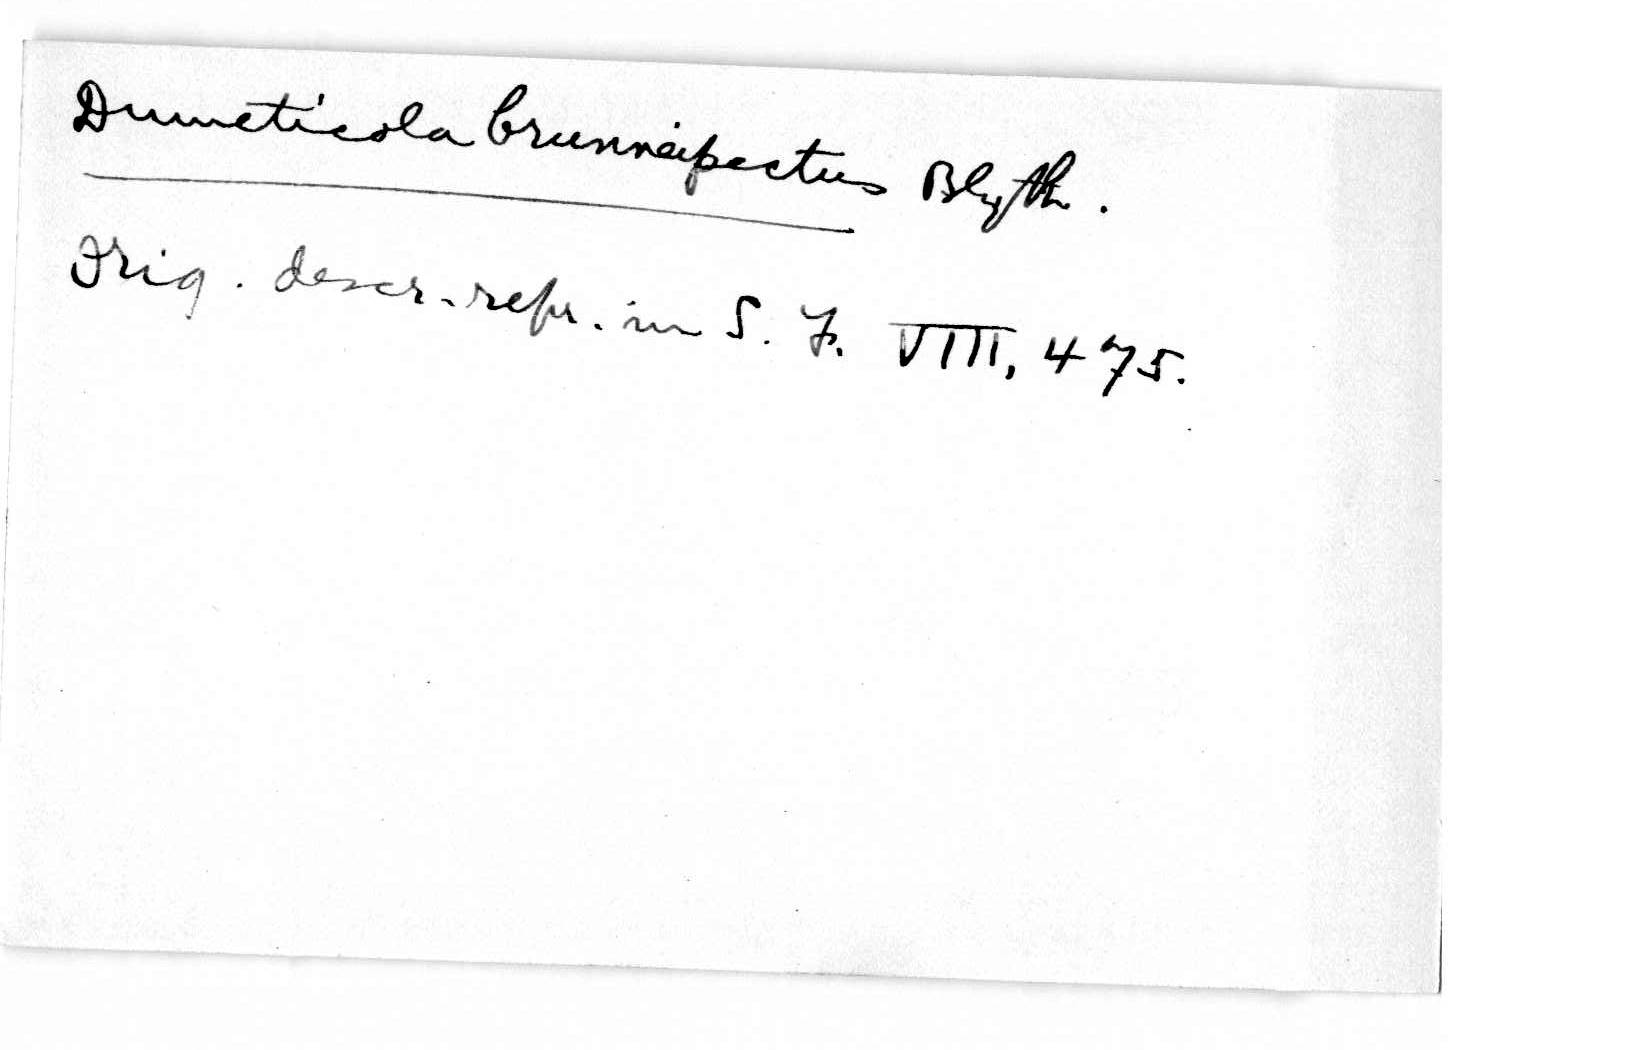 Dumeticola brunneipectus Blyth.
Orig. descr. repr. in S. F. VIII, 475.